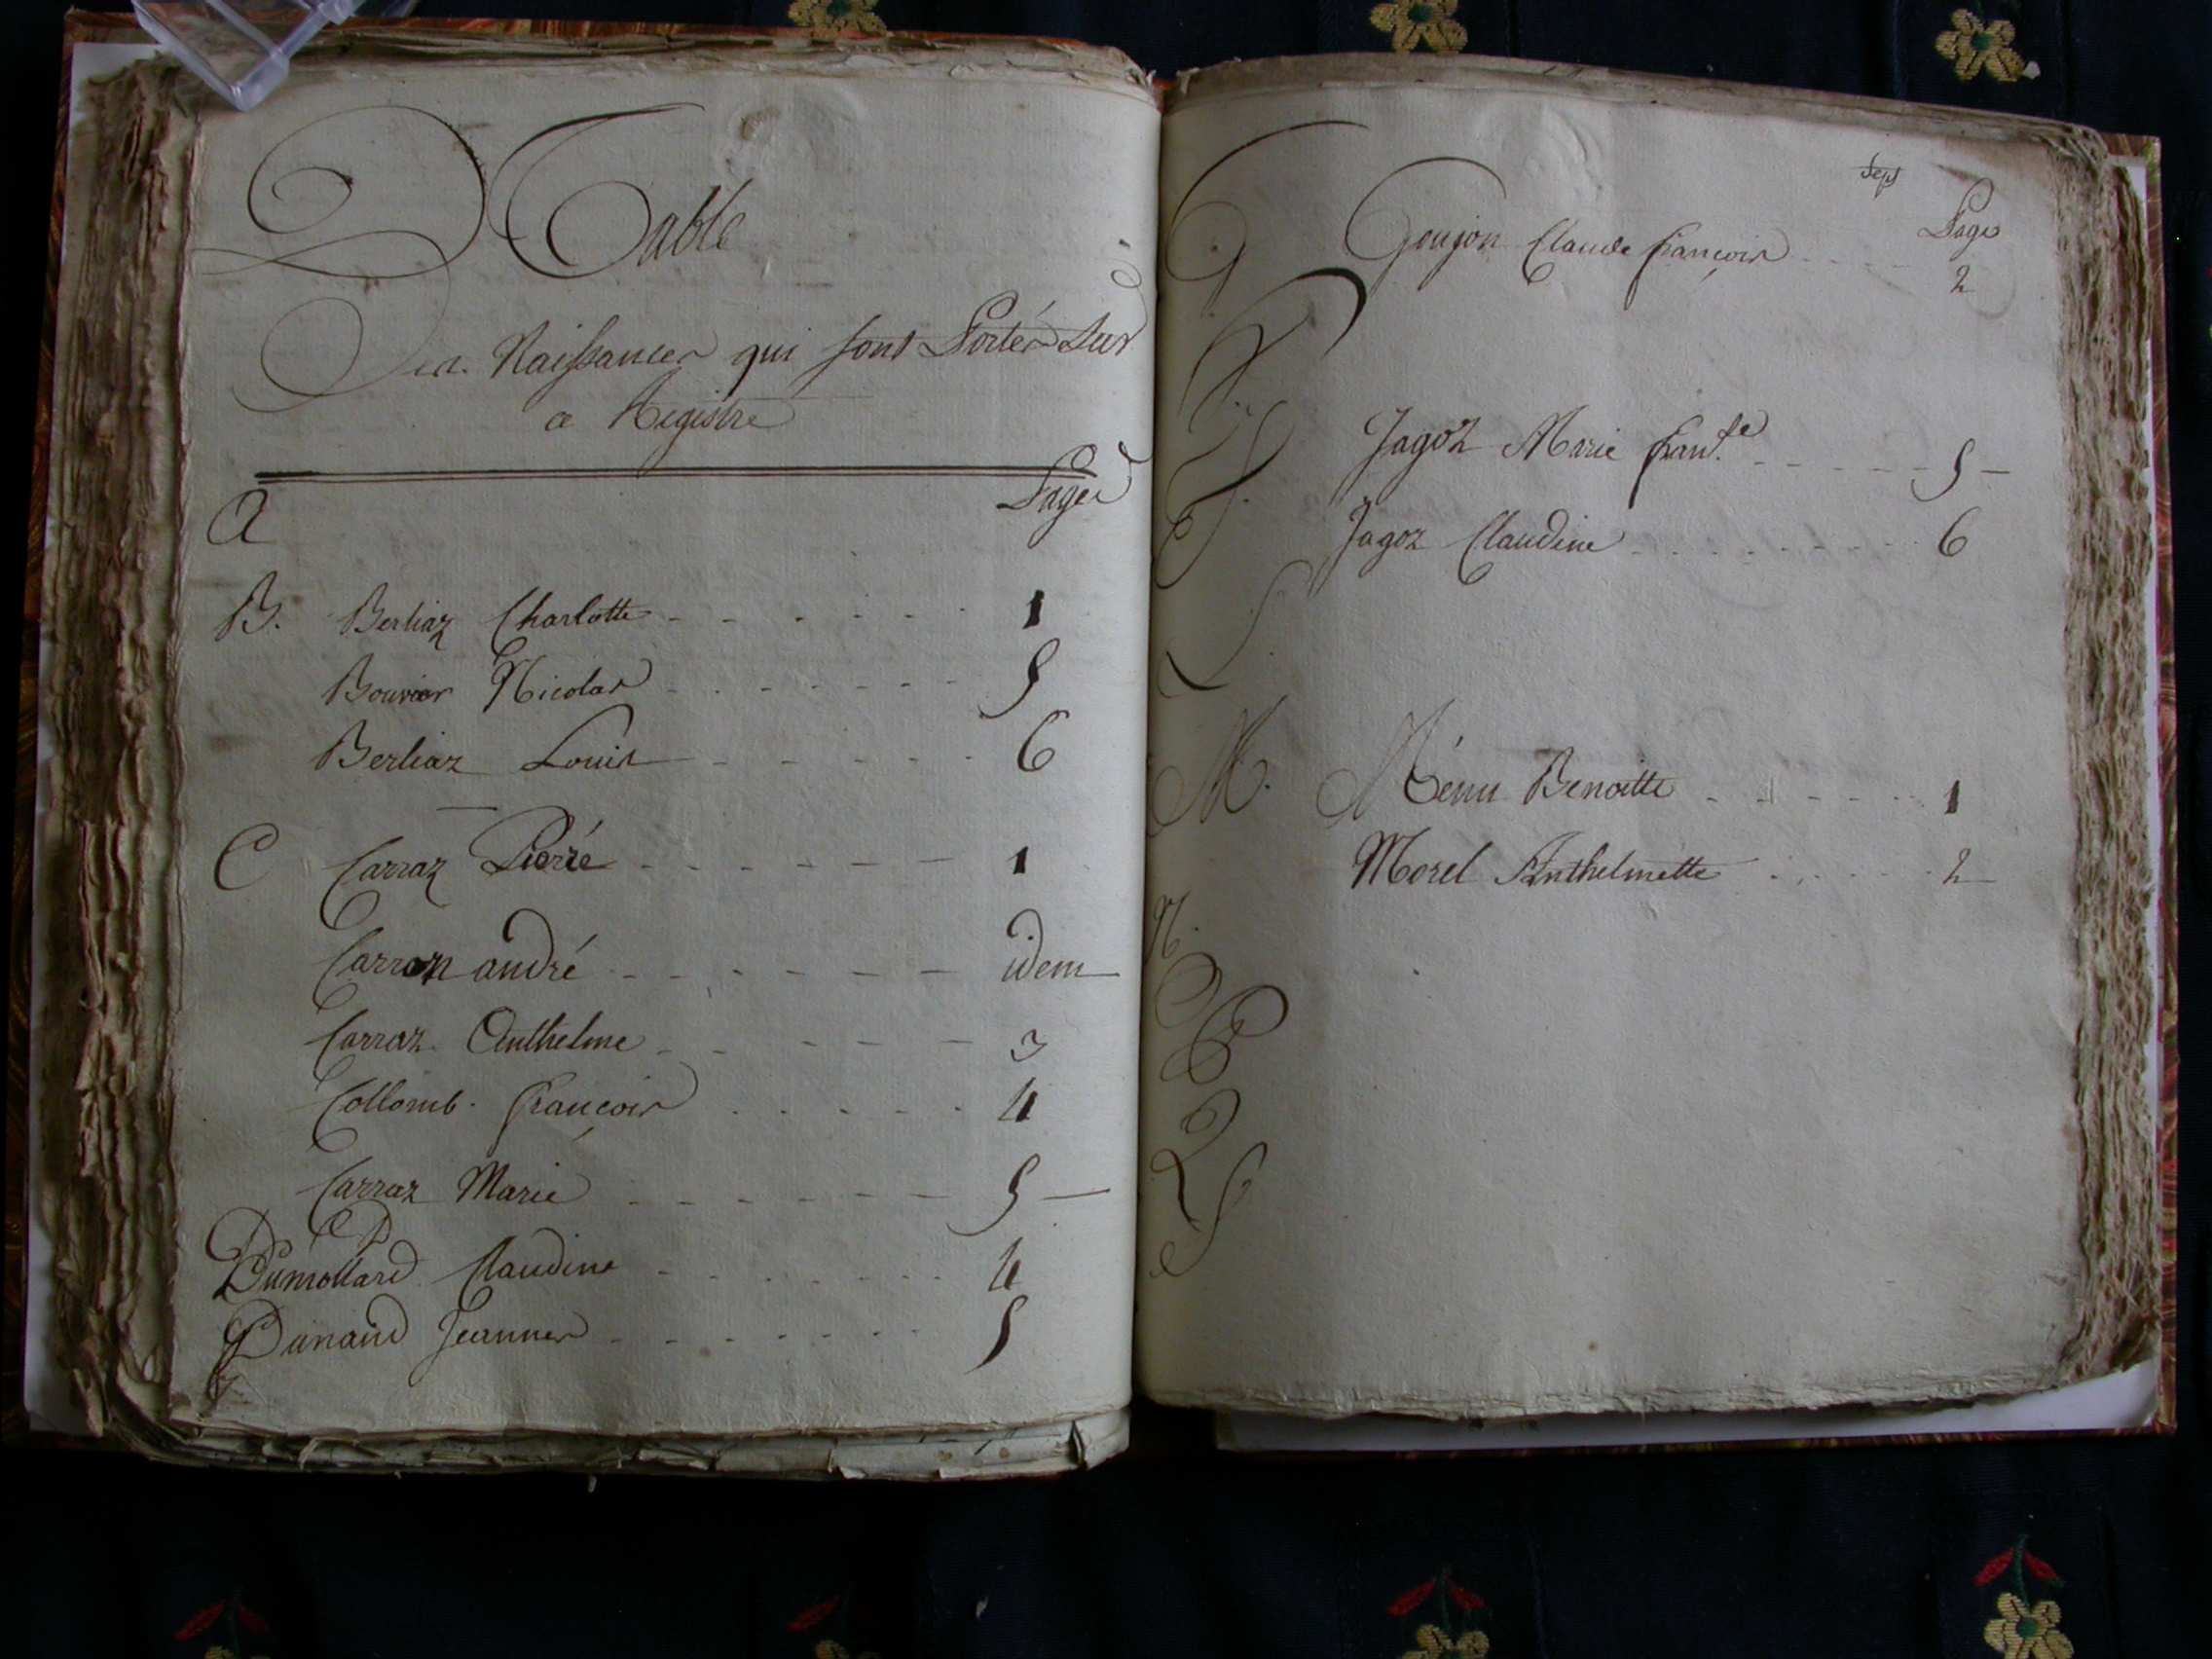 Table
Des Naissances qui sont Portés Sur
ce Registre
Pages
A
B. Berliaz Charlotte - - - - - - 1
Bouvier Nicolas - - - - - - - 5
Berliaz Louis - - - - - - 6
C Carraz Pierre - - - - - - 1
Carraz andré - - - - - - - idem
Carraz Anthelme - - - - - 3
Collomb François - - - - - 4
Carraz Marie - - - - - - - 5
D
Dumollard Claudine - - - - - - - 4
Dunand Jeanne - - - - - - - 5
Sept
Pages
G Goujon Claude François - - - - 2
H
J Jagoz Marie Fran.se - - - - - - 5
Jagoz Claudine - - - - - - - - 6
L
M. Bénoitte - - - - - - 1
Morel Anthelmette - - - - - - 2
N.
O
P
Q
S